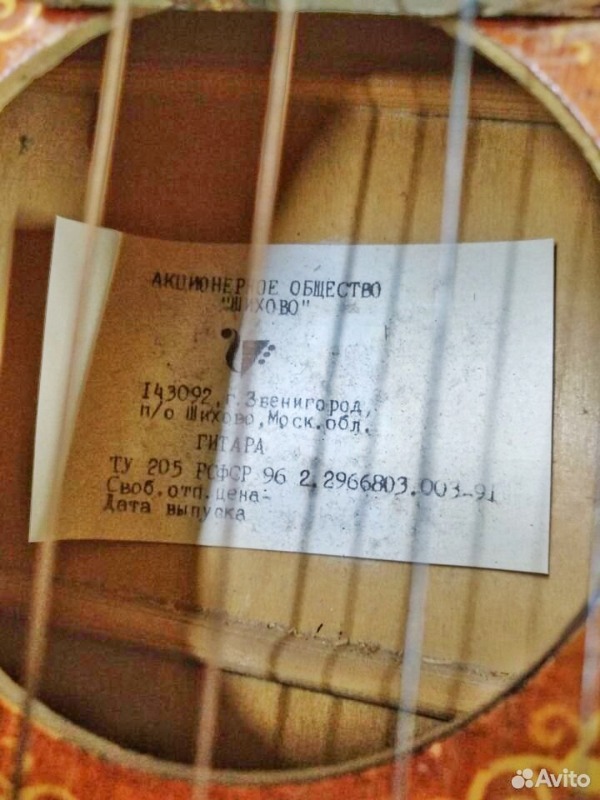 АКЦИОНЕРНОЕ ОБЩЕСТВО
"ШИХОВО"
143092, г.Звенигород,
п/о Шихово, Моск.обл.
ГИТАРА
ТУ 205 РСФСР 96 2.2966803.003-91
Своб.отп.цена-
Дата выпуска
Avito